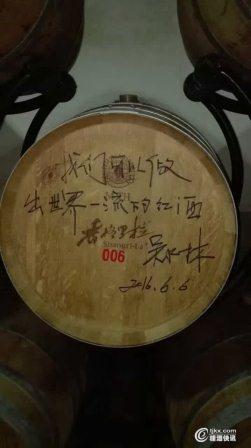 我们可以做
出世界一流的红酒
香格里拉
Shangri-La
006
2016.6.6
tjkx.com
糖酒快讯